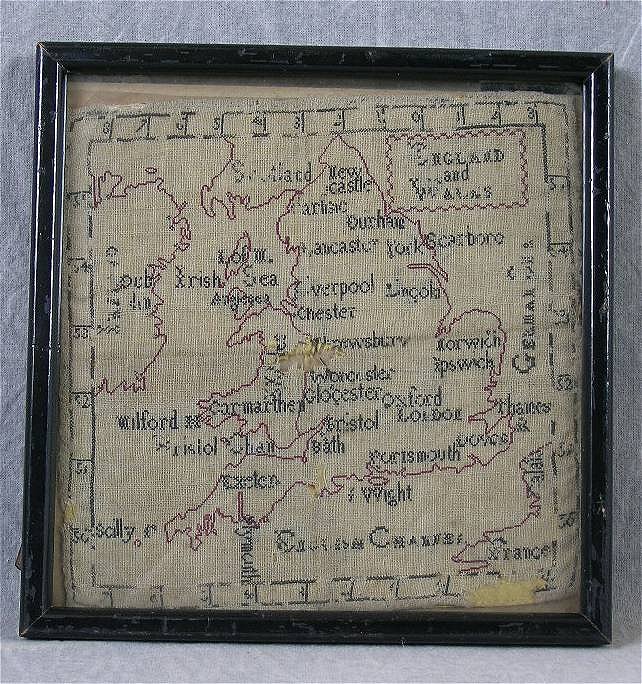 ENGLAND
and
WALES
Scotland
New
castle
Durham
Lancaster
York
Scarboro
I of M.
Irish Sea
Anglesea
Dub
lin
Liverpool
Lincoln
Chester
Shrewsbury
Norwich
Ipswich
Worcester
Glocester
Oxford
Carmarthen
London
Thames
R
Milford H
Bristol
Bristol Chan
Bath
Dover
Portsmouth
Exeter
I Wight
Plymouth
Scilly
ENGLISH CHANNEL
France